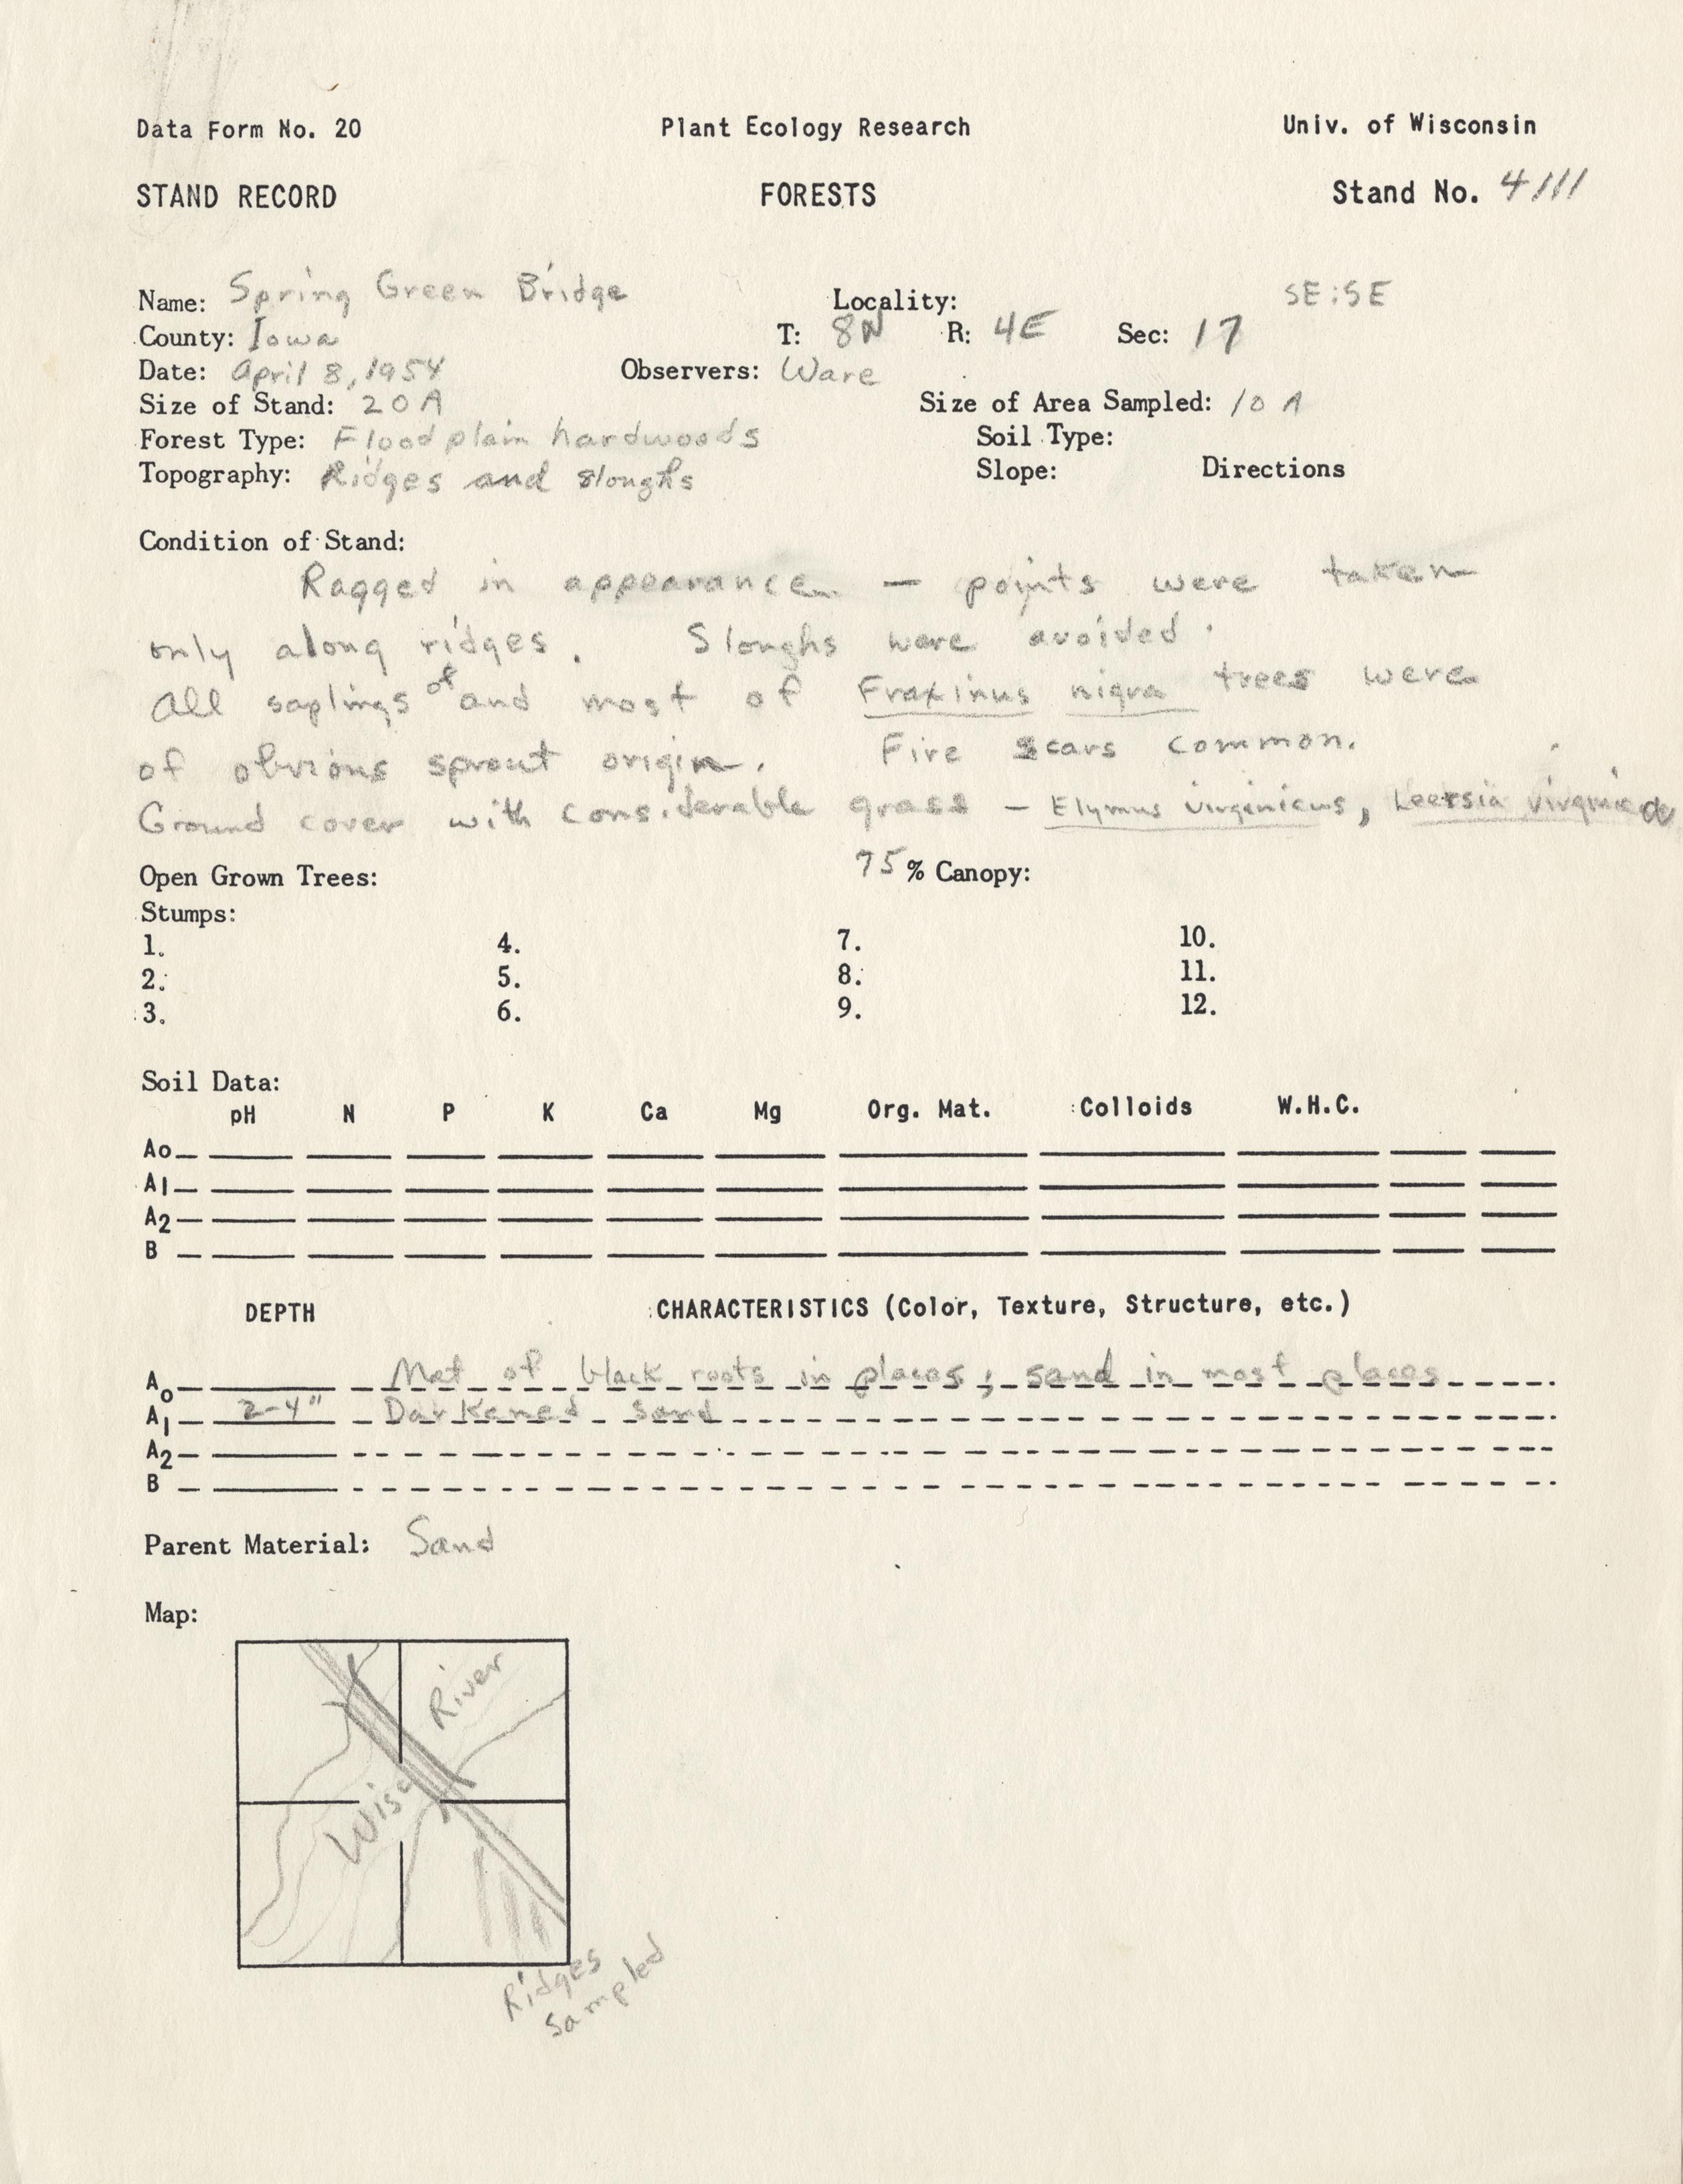 Data Form No. 20 Plant Ecology Research Univ. of Wisconsin
STAND RECORD FORESTS Stand No. 4111
Name: Spring Green Bridge Locality: SE:SE
County: Iowa T: 8N R: 4E Sec: 17
Date: April 8, 1954 Observers: Ware
Size of Stand: 20 A Size of Area Sampled: 10 A
Forest Type: Floodplain hardwoods Soil Type:
Topography: Ridges and sloughs Slope: Directions
Condition of Stand:
Ragged in appearance — points were taken
only along ridges. Sloughs were avoided.
All saplings of and most of Fraxinus nigra trees were
of obvious sprout origin. Fire scars common.
Ground cover with considerable grass — Elymus virginicus, Leersia virginica
Open Grown Trees: 75 % Canopy:
Stumps:
1. 4. 7. 10.
2. 5. 8. 11.
3. 6. 9. 12.
Soil Data:
pH N P K Ca Mg Org. Mat. Colloids W.H.C.
Ao
A1
A2
B
DEPTH CHARACTERISTICS (Color, Texture, Structure, etc.)
Ao Mat of black roots in places; sand in most places
A1 2-4" Darkened sand
A2
B
Parent Material: Sand
Map:
Wisc River
Ridges
sampled